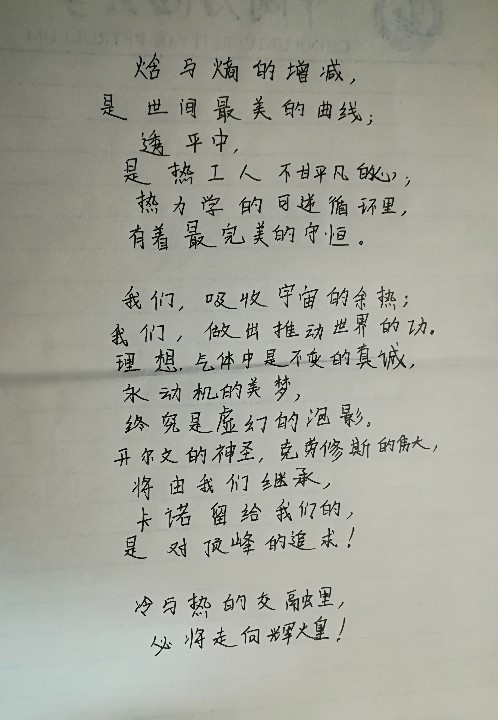 焓与熵的增减，
是世间最美的曲线；
透平中，
是热工人不甘平凡的心；
热力学的可逆循环里，
有着最完美的守恒。
我们，吸收宇宙的余热；
我们，做出推动世界的功。
理想气体中是不变的真诚，
永动机的美梦，
终究是虚幻的泡影。
开尔文的神圣，克劳修斯的伟大，
将由我们继承，
卡诺留给我们的，
是对顶峰的追求！
冷与热的交融里，
必将走向辉煌！